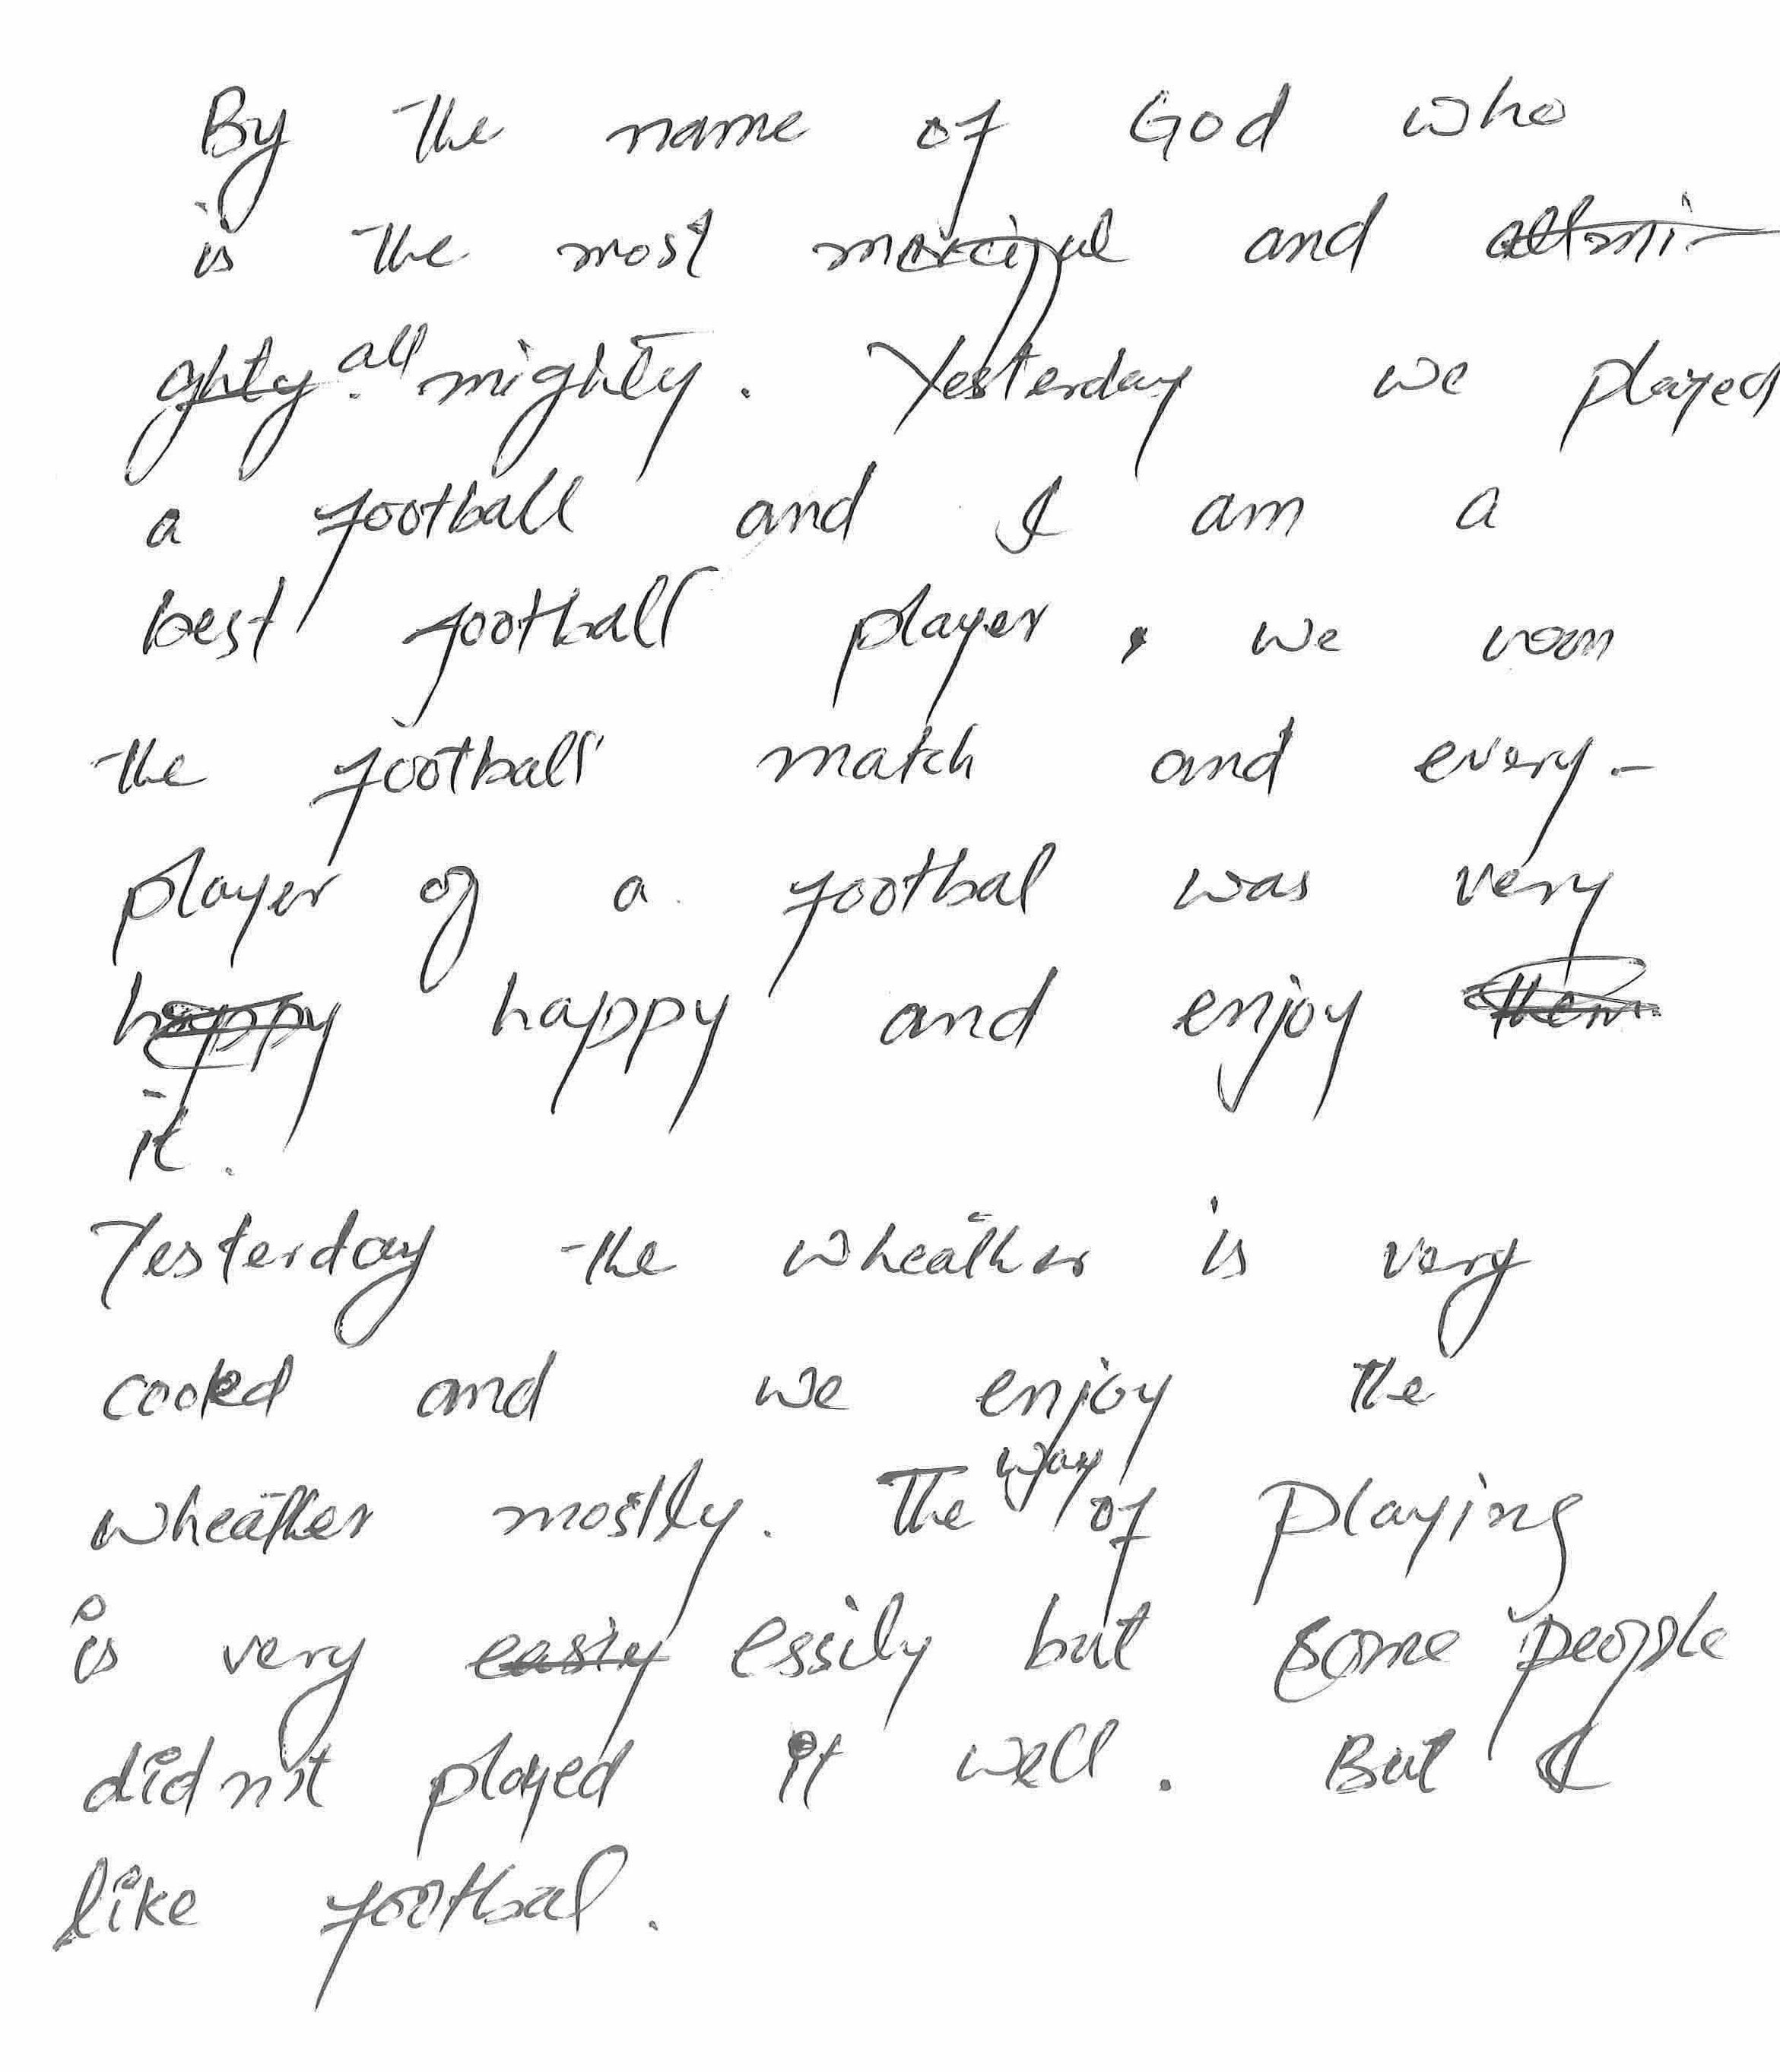 By the name of God who
is the most merciful and allmi-
ghty. all mighty. Yesterday we played
a football and I am a
best football player, we won
the football match and every-
player of a footbal was very
happy happy and enjoy them
it.
Yesterday the wheather is very
cooled and we enjoy the
wheather mostly. The way of playing
is very easiy essily but some people
did not played it well. But I
like footbal.